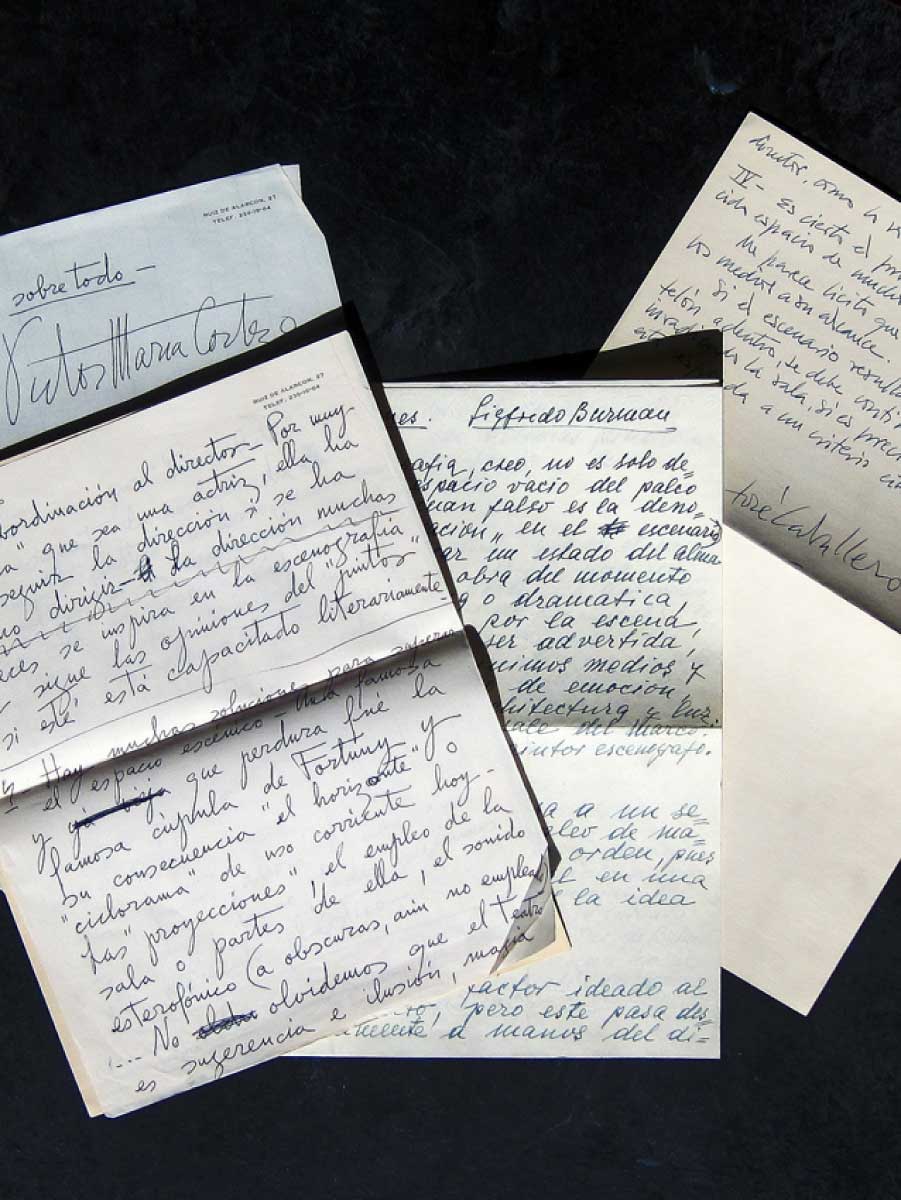 RUIZ DE ALARCON, 27
TELEF. 230-19-64
sobre todo —
Victor María Cortezo
RUIZ DE ALARCON, 27
TELEF. 230-19-64
bordinación al director. Por muy
que sea una actriz, ella ha
seguir la dirección y se ha
no dirigir— la dirección muchas
veces se inspira en la escenografía
sigue las opiniones del "juntos"
si esté está capacitado literariamente
Hay muchas soluciones para
el espacio escénico — una famosa
y ya vieja que perdura fué la
famosa cúpula de Fortuny y
su consecuencia "el horizonte" o
"ciclorama" de uso corriente hoy-
las "proyecciones", el empleo de la
sala o partes de ella, el sonido
esterofónico (a obscuras, aún no emplea
... No olvidemos que el teatro
es sugerencia e ilusión, magia
es. Sigfredo Burman
afia, creo, no es solo de=
espacio vacio del palco
uan falso es la deno=
cion" en el escenario
ar un estado del alma
obra del momento
g o dramatica,
por la escena,
ser advertida,
nimos medios y
de emoción,
hitectura y luz
sale del Marco:
pintor escenografo.
a a un se=
pleo de ma=
orden, pues
t en una
la idea
factor ideado al
tro, pero este pasa des=
mente a manos del di=
director, como la
IV- Es cierto el pro
cida espacio de mucho
Me parece licito que
los medios a su alcance.
Si el escenario result
telón adentro, se debe conti
invadiendo la sala, si es preci
da a un criterio
José Caballero